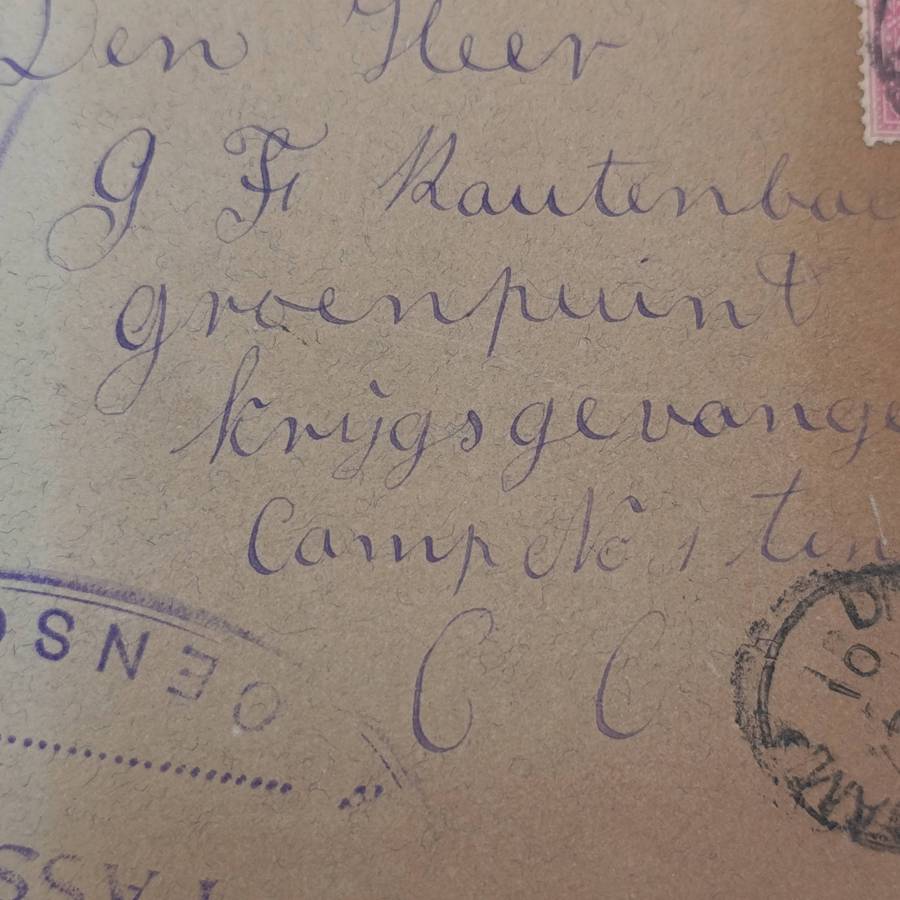 Den Heer
G F Rautenbac
groenpuint
krijgsgevange
Camp No 1 ten
C C
CENSO
PASS